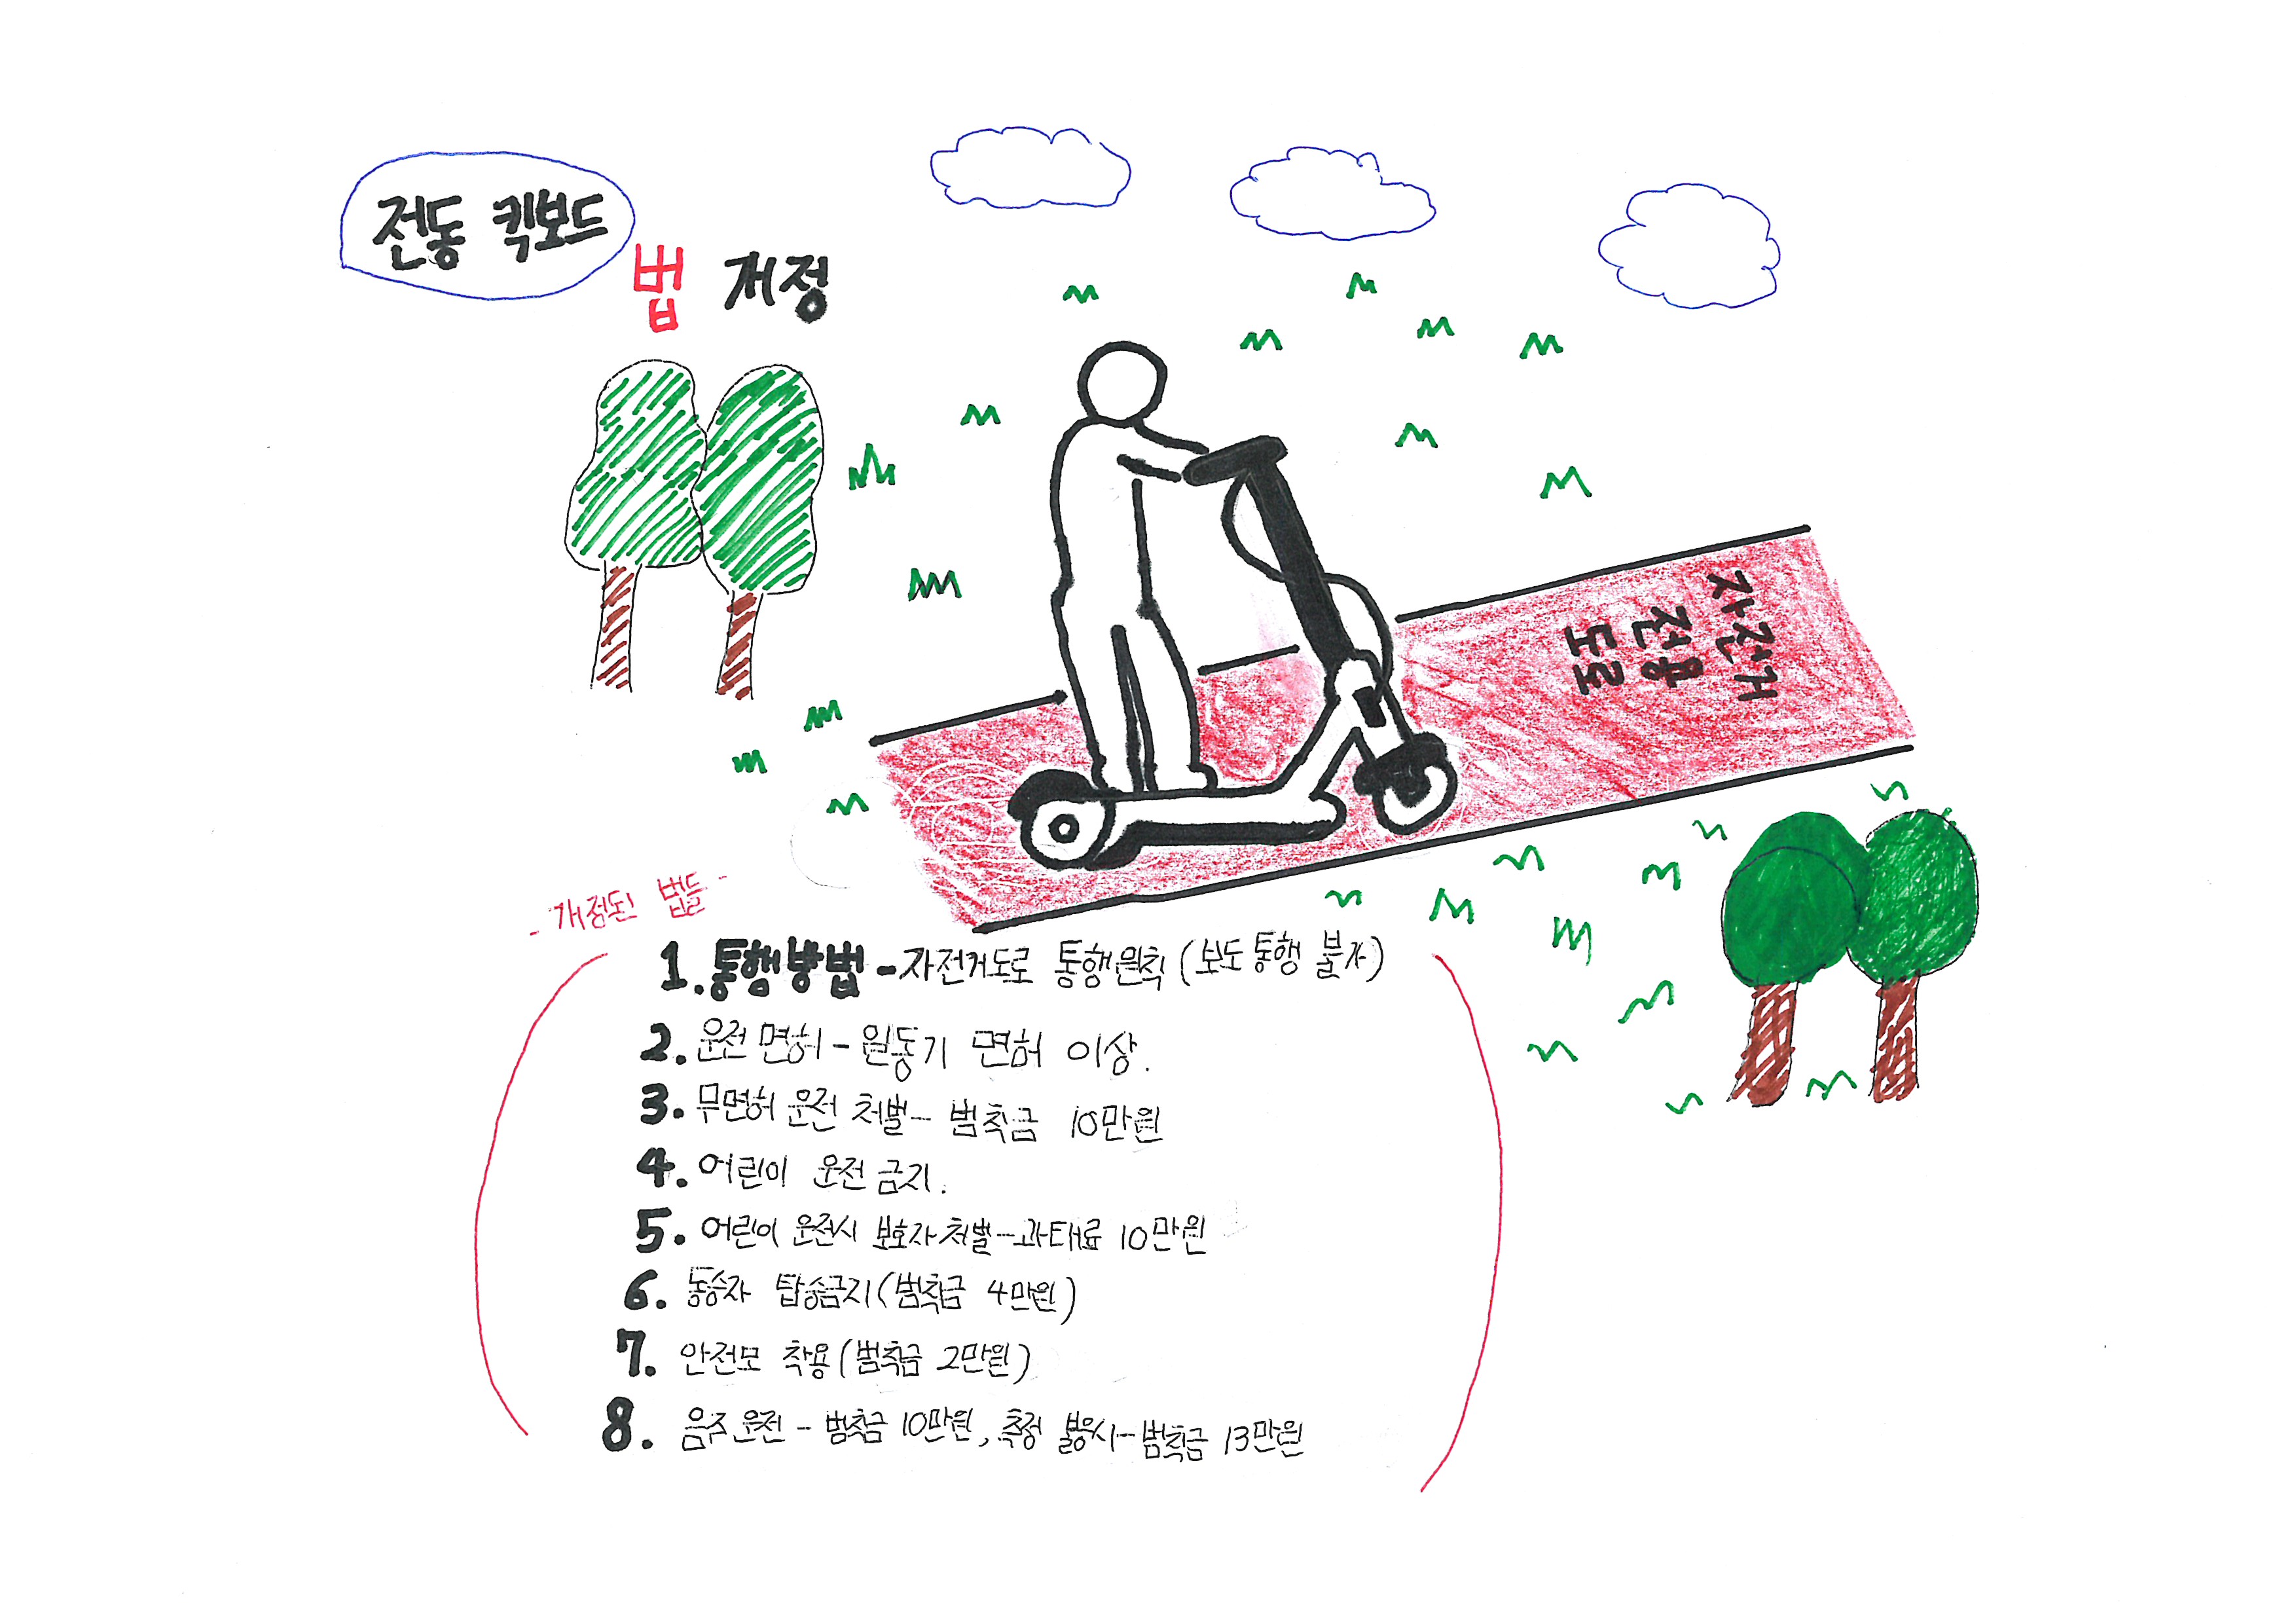 전동 킥보드
법 개정
자전거
전용
도로
- 개정된 법들 -
1. 통행방법 - 자전거도로 통행원칙 (보도 통행 불가)
2. 운전 면허 - 원동기 면허 이상.
3. 무면허 운전 처벌 - 범칙금 10만원
4. 어린이 운전 금지.
5. 어린이 운전시 보호자 처벌 - 과태료 10만원
6. 동승자 탑승금지 (범칙금 4만원)
7. 안전모 착용 (범칙금 2만원)
8. 음주 운전 - 범칙금 10만원, 측정 불응시 - 범칙금 13만원